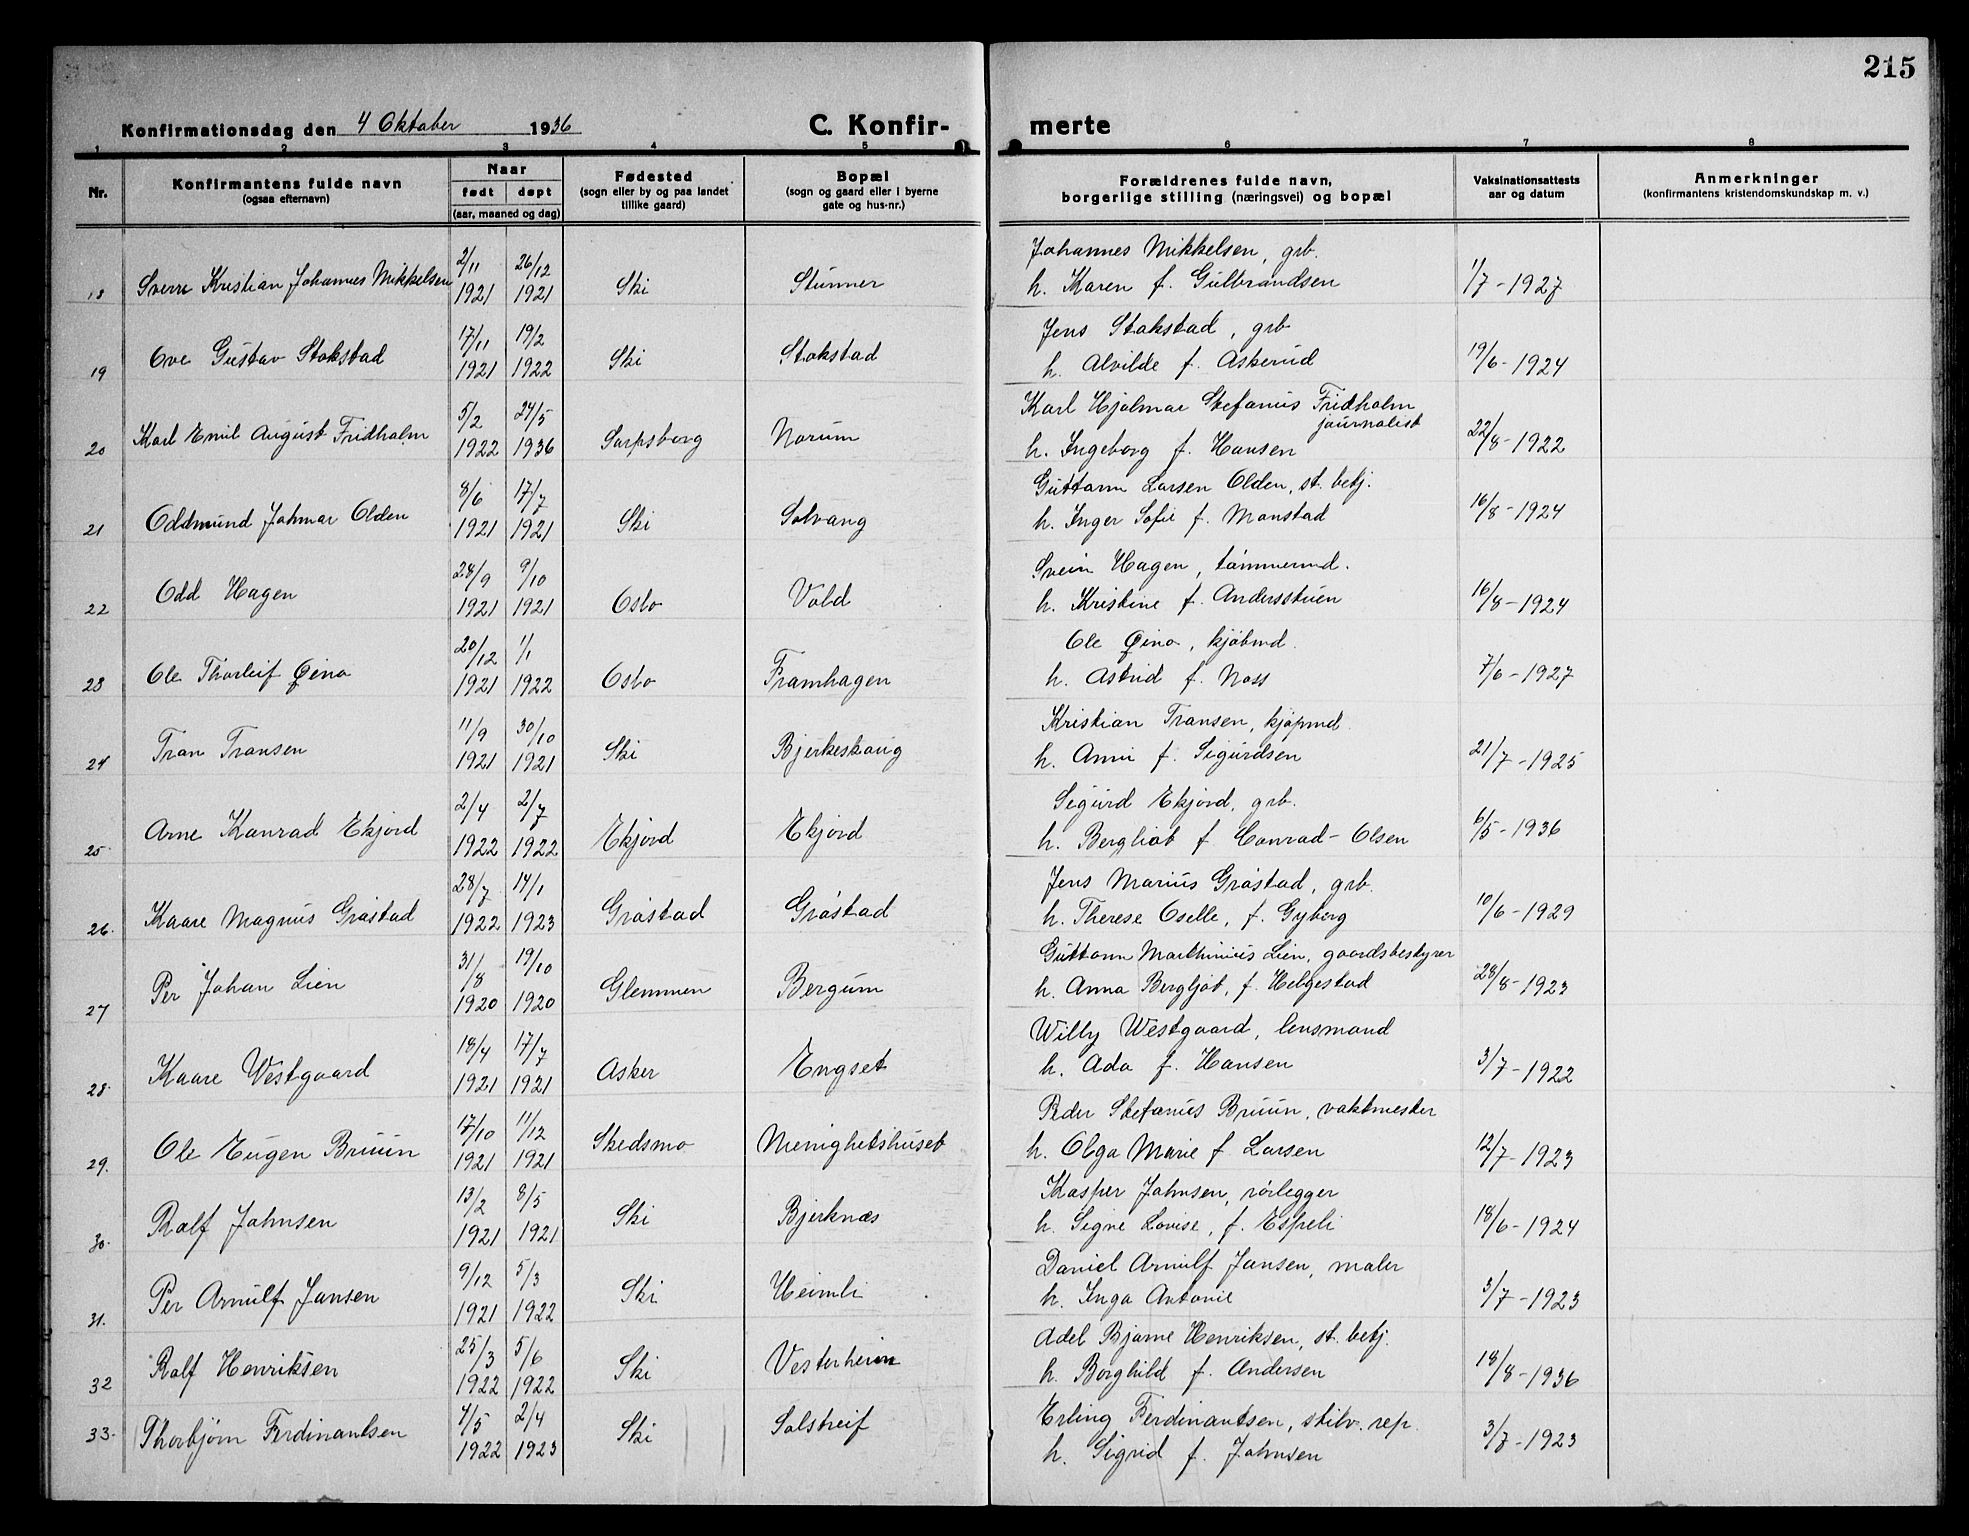 215
Konfirmationsdag den 4 Oktober 1936 C. Konfir- merte
1 2 3 4 5 6 7 8
Nr. Konfirmantens fulde navn (ogsaa efternavn) Naar født døpt (aar, maaned og dag) Fødested (sogn eller by og paa landet tillike gaard) Bopæl (sogn og gaard eller i byerne gate og hus-nr.) Forældrenes fulde navn, borgerlige stilling (næringsvei) og bopæl Vaksinationsattests aar og datum Anmerkninger (konfirmantens kristendomskundskap m. v.)
2/11 26/12 Johannes Mikkelsen, grb.
18 Sverre Kristian Johannes Mikkelsen 1921 1921 Ski Stunner h. Karen f. Gulbrandsen 1/7-1927
17/11 19/2 Jens Stokstad, grb
19 Ove Gustav Stokstad 1921 1922 Ski Stokstad h. Alvilde f. Askerud 19/6-1924
5/2 24/5 Karl Hjalmar Stefanus Fridholm
journalist
20 Karl Emil August Fridholm 1922 1936 Sarpsborg Norum h. Ingeborg f. Hansen 22/8-1922
8/6 17/7 Guttorm Larsen Olden, st. betj.
21 Oddmund Jahmar Olden 1921 1921 Ski Solvang h. Inger Sofie f. Monstad 16/8-1924
28/9 9/10 Svein Hagen, tømmermd.
22 Odd Hagen 1921 1921 Oslo Vold h. Kristine f. Andersstuen 16/8-1924
20/12 1/1 Ole Qino, kjøbmd.
23 Ole Thorleif Qino 1921 1922 Oslo Framhagen h. Astrid f. Noss 7/6-1927
11/9 30/10 Kristian Transen, kjøpmd.
24 Tran Transen 1921 1921 Ski Bjerkeskaug h. Anni f. Sigurdsen 21/7-1925
2/4 2/7 Sigurd Ekjord, grb.
25. Arne Konrad Ekjord 1922 1922 Ekjord Ekjord h. Bergliot f Conrad-Olsen 6/5-1936
28/7 14/1 Jens Marius Gråstad, grb.
26. Kaare Magnus Gråstad 1922 1923 Gråstad Gråstad h. Therese Oselle, f. Gyberg 10/6-1929
31/8 19/10 Guttorm Marthinius Lien, gaardsbestyrer
27 Per Johan Lien 1920 1920 Glemmen Bergum h. Anna Bergljot, f. Helgestad 28/8-1923
18/4 17/7 Willy Westgaard, lensmand
28. Kaare Westgaard 1921 1921 Asker Engset h. Ada f. Hansen 3/7-1922
17/10 11/12 Peder Stefanus Bruun, vaktmester
29. Ole Eugen Bruun 1921 1921 Skedsmo Menighetshuset h. Olga Marie f Larsen 12/7-1923
13/2 8/5 Kasper Johnsen, rørlegger
30. Ralf Johnsen 1921 1921 Ski Bjerknæs h. Signe Lovise, f. Espeli 18/6-1924
9/12 5/3 Daniel Arnulf Jansen, maler
31. Per Arnulf Jansen 1921 1922 Ski Heimli h. Inga Antonie 3/7-1923
25/3 5/6 Adel Bjarne Henriksen, st. betj.
32 Ralf Henriksen 1922 1922 Ski Vesterheim h. Borghild f. Andersen 18/8-1936
4/5 2/4 Erling Ferdinantsen, stilv. rep.
33. Thorbjørn Ferdinantsen 1922 1923 Ski Solstreif h. Sigrid f. Johnsen 3/7-1923